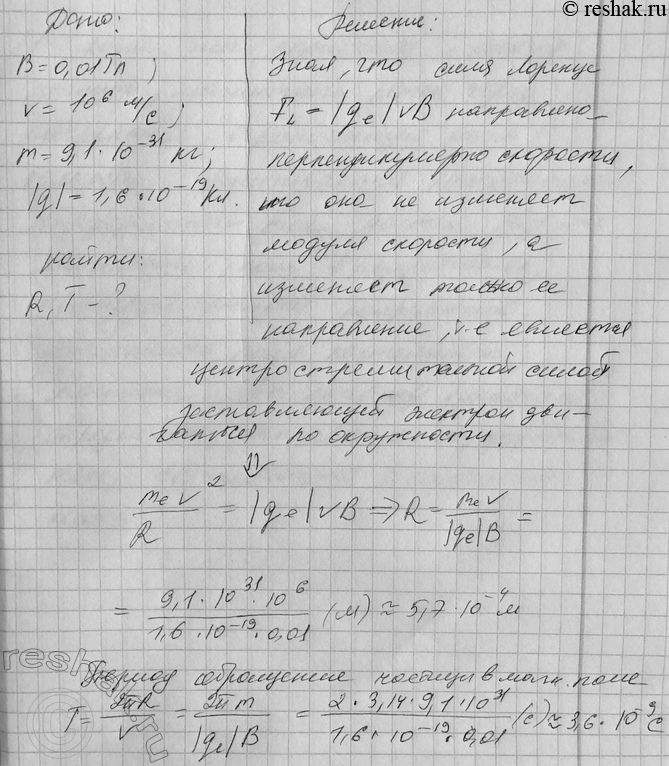 © reshak.ru
Дано:
B = 0,01 Тл ;
v = 10⁶ м/с ;
m = 9,1 · 10⁻³¹ кг ;
|q| = 1,6 · 10⁻¹⁹ Кл.
найти:
R, T - ?
Решение:
Зная, что сила Лоренца
Fл = |qe| vB направлена
перпендикулярно скорости,
что она не изменяет
модуля скорости, а
изменяет только ее
направление, т.е является
центростремительной силой
заставляющей электрон дви-
гаться по окружности.
⇓
mev²/R = |qe| vB ⇒ R = mev/|qe|B =
= 9,1 · 10³¹ · 10⁶/1,6 · 10⁻¹⁹ · 0,01 (м) ≈ 5,7 · 10⁻⁴ м
Период обращения частицы в магн. поле
T = 2πR/v = 2πm/|qe|B = 2 · 3,14 · 9,1 · 10³¹/1,6 · 10⁻¹⁹ · 0,01 (с) ≈ 3,6 · 10⁻⁹ с
reshak.ru